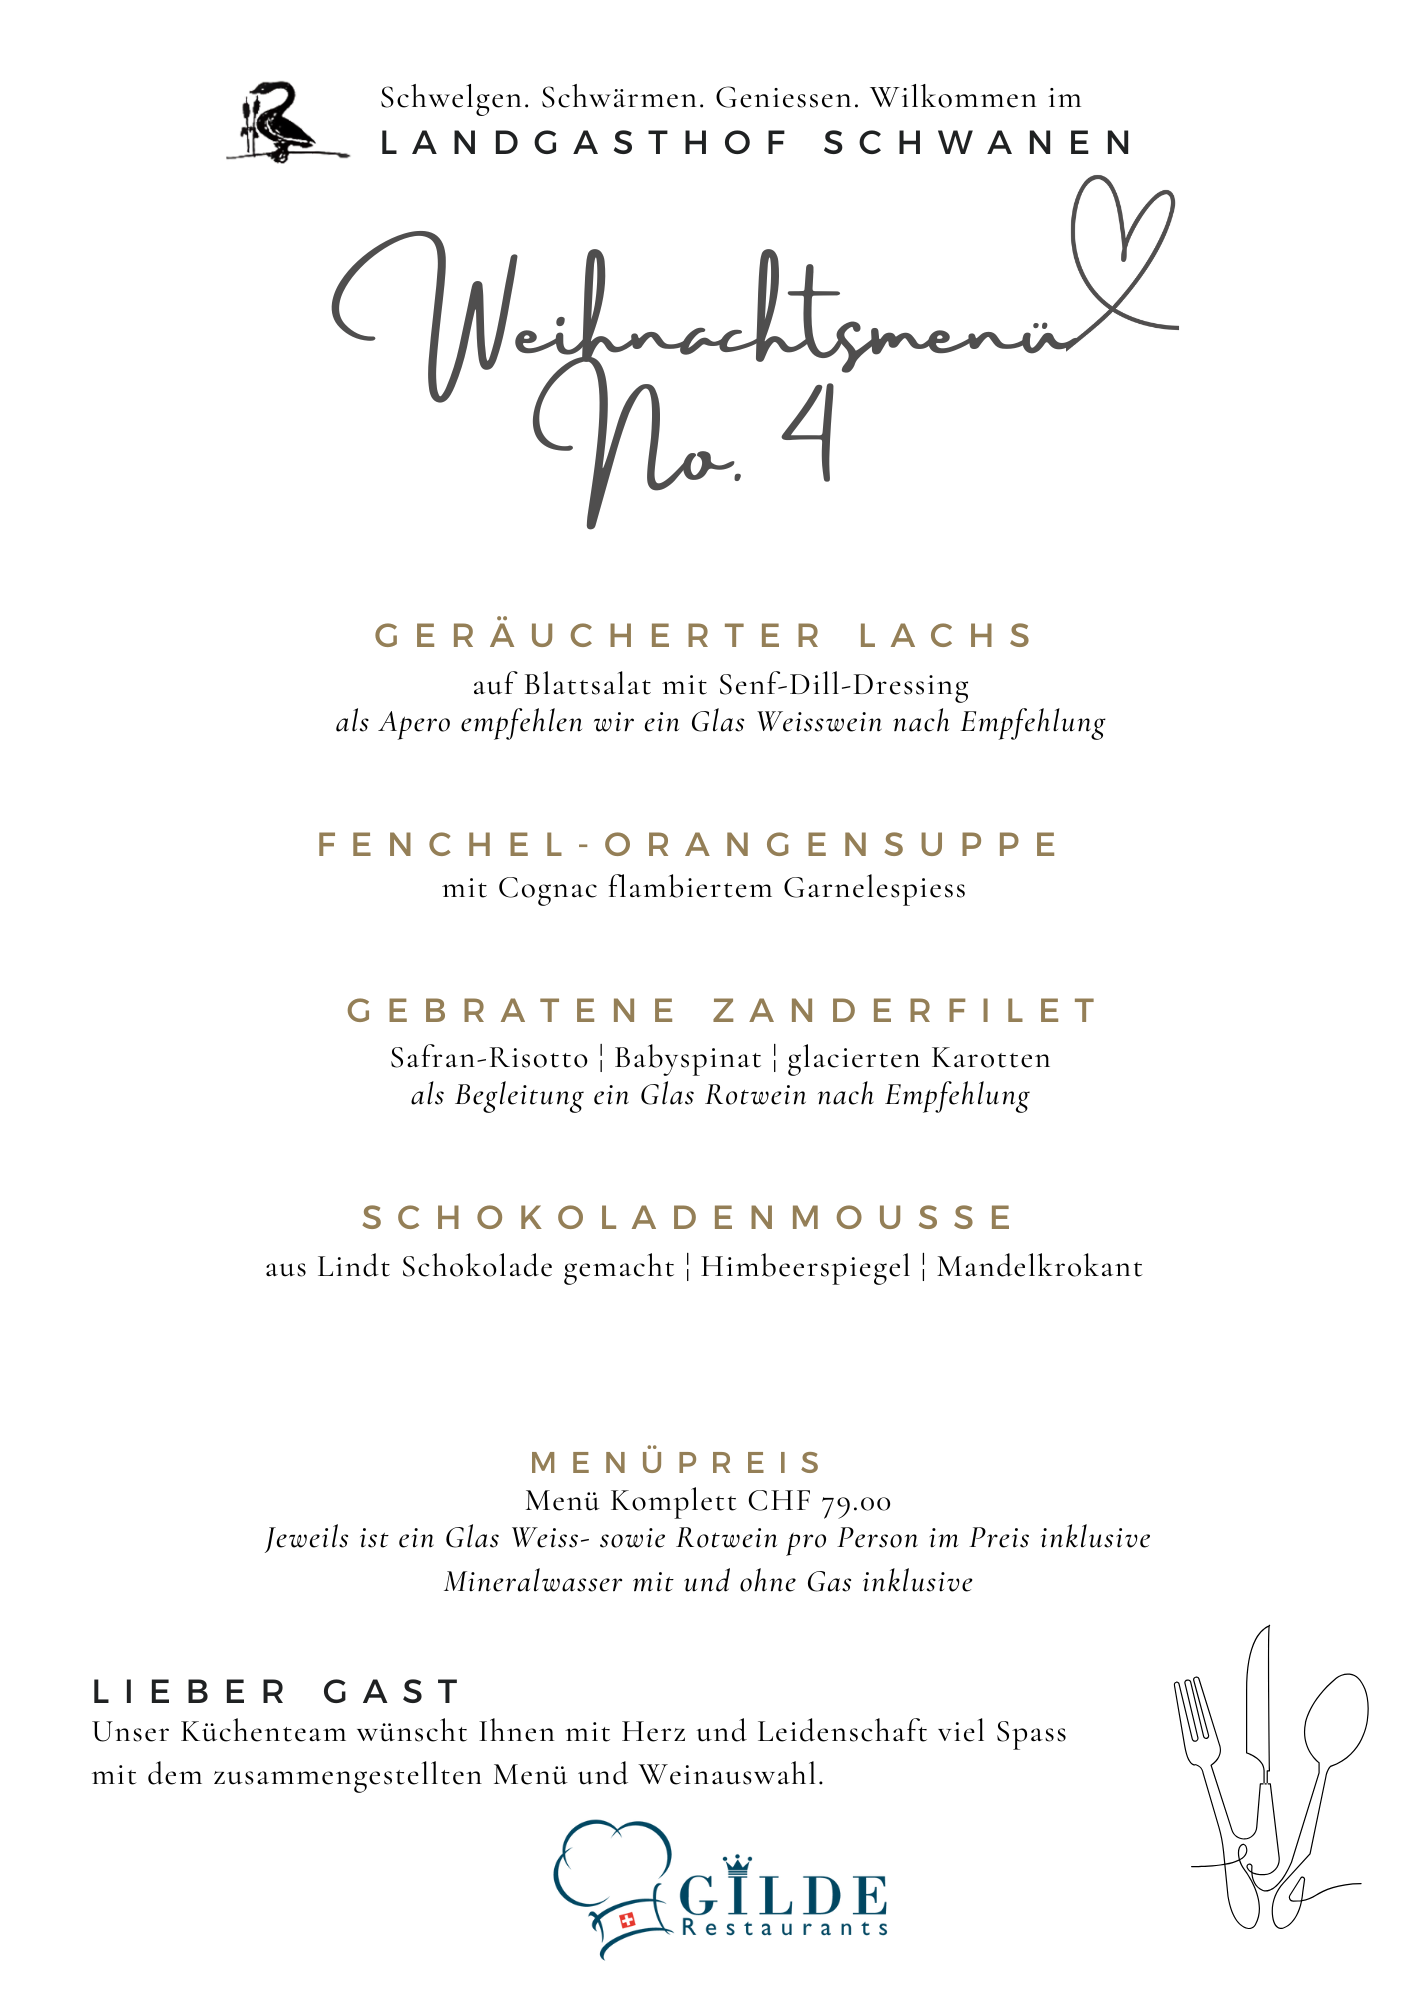 Schwelgen. Schwärmen. Geniessen. Wilkommen im
LANDGASTHOF SCHWANEN
Weihnachtsmenü
No. 4
GERÄUCHERTER LACHS
auf Blattsalat mit Senf-Dill-Dressing
als Apero empfehlen wir ein Glas Weisswein nach Empfehlung
FENCHEL-ORANGENSUPPE
mit Cognac flambiertem Garnelespiess
GEBRATENE ZANDERFILET
Safran-Risotto ¦ Babyspinat ¦ glacierten Karotten
als Begleitung ein Glas Rotwein nach Empfehlung
SCHOKOLADENMOUSSE
aus Lindt Schokolade gemacht ¦ Himbeerspiegel ¦ Mandelkrokant
MENÜPREIS
Menü Komplett CHF 79.00
Jeweils ist ein Glas Weiss- sowie Rotwein pro Person im Preis inklusive
Mineralwasser mit und ohne Gas inklusive
LIEBER GAST
Unser Küchenteam wünscht Ihnen mit Herz und Leidenschaft viel Spass
mit dem zusammengestellten Menü und Weinauswahl.
GILDE
Restaurants